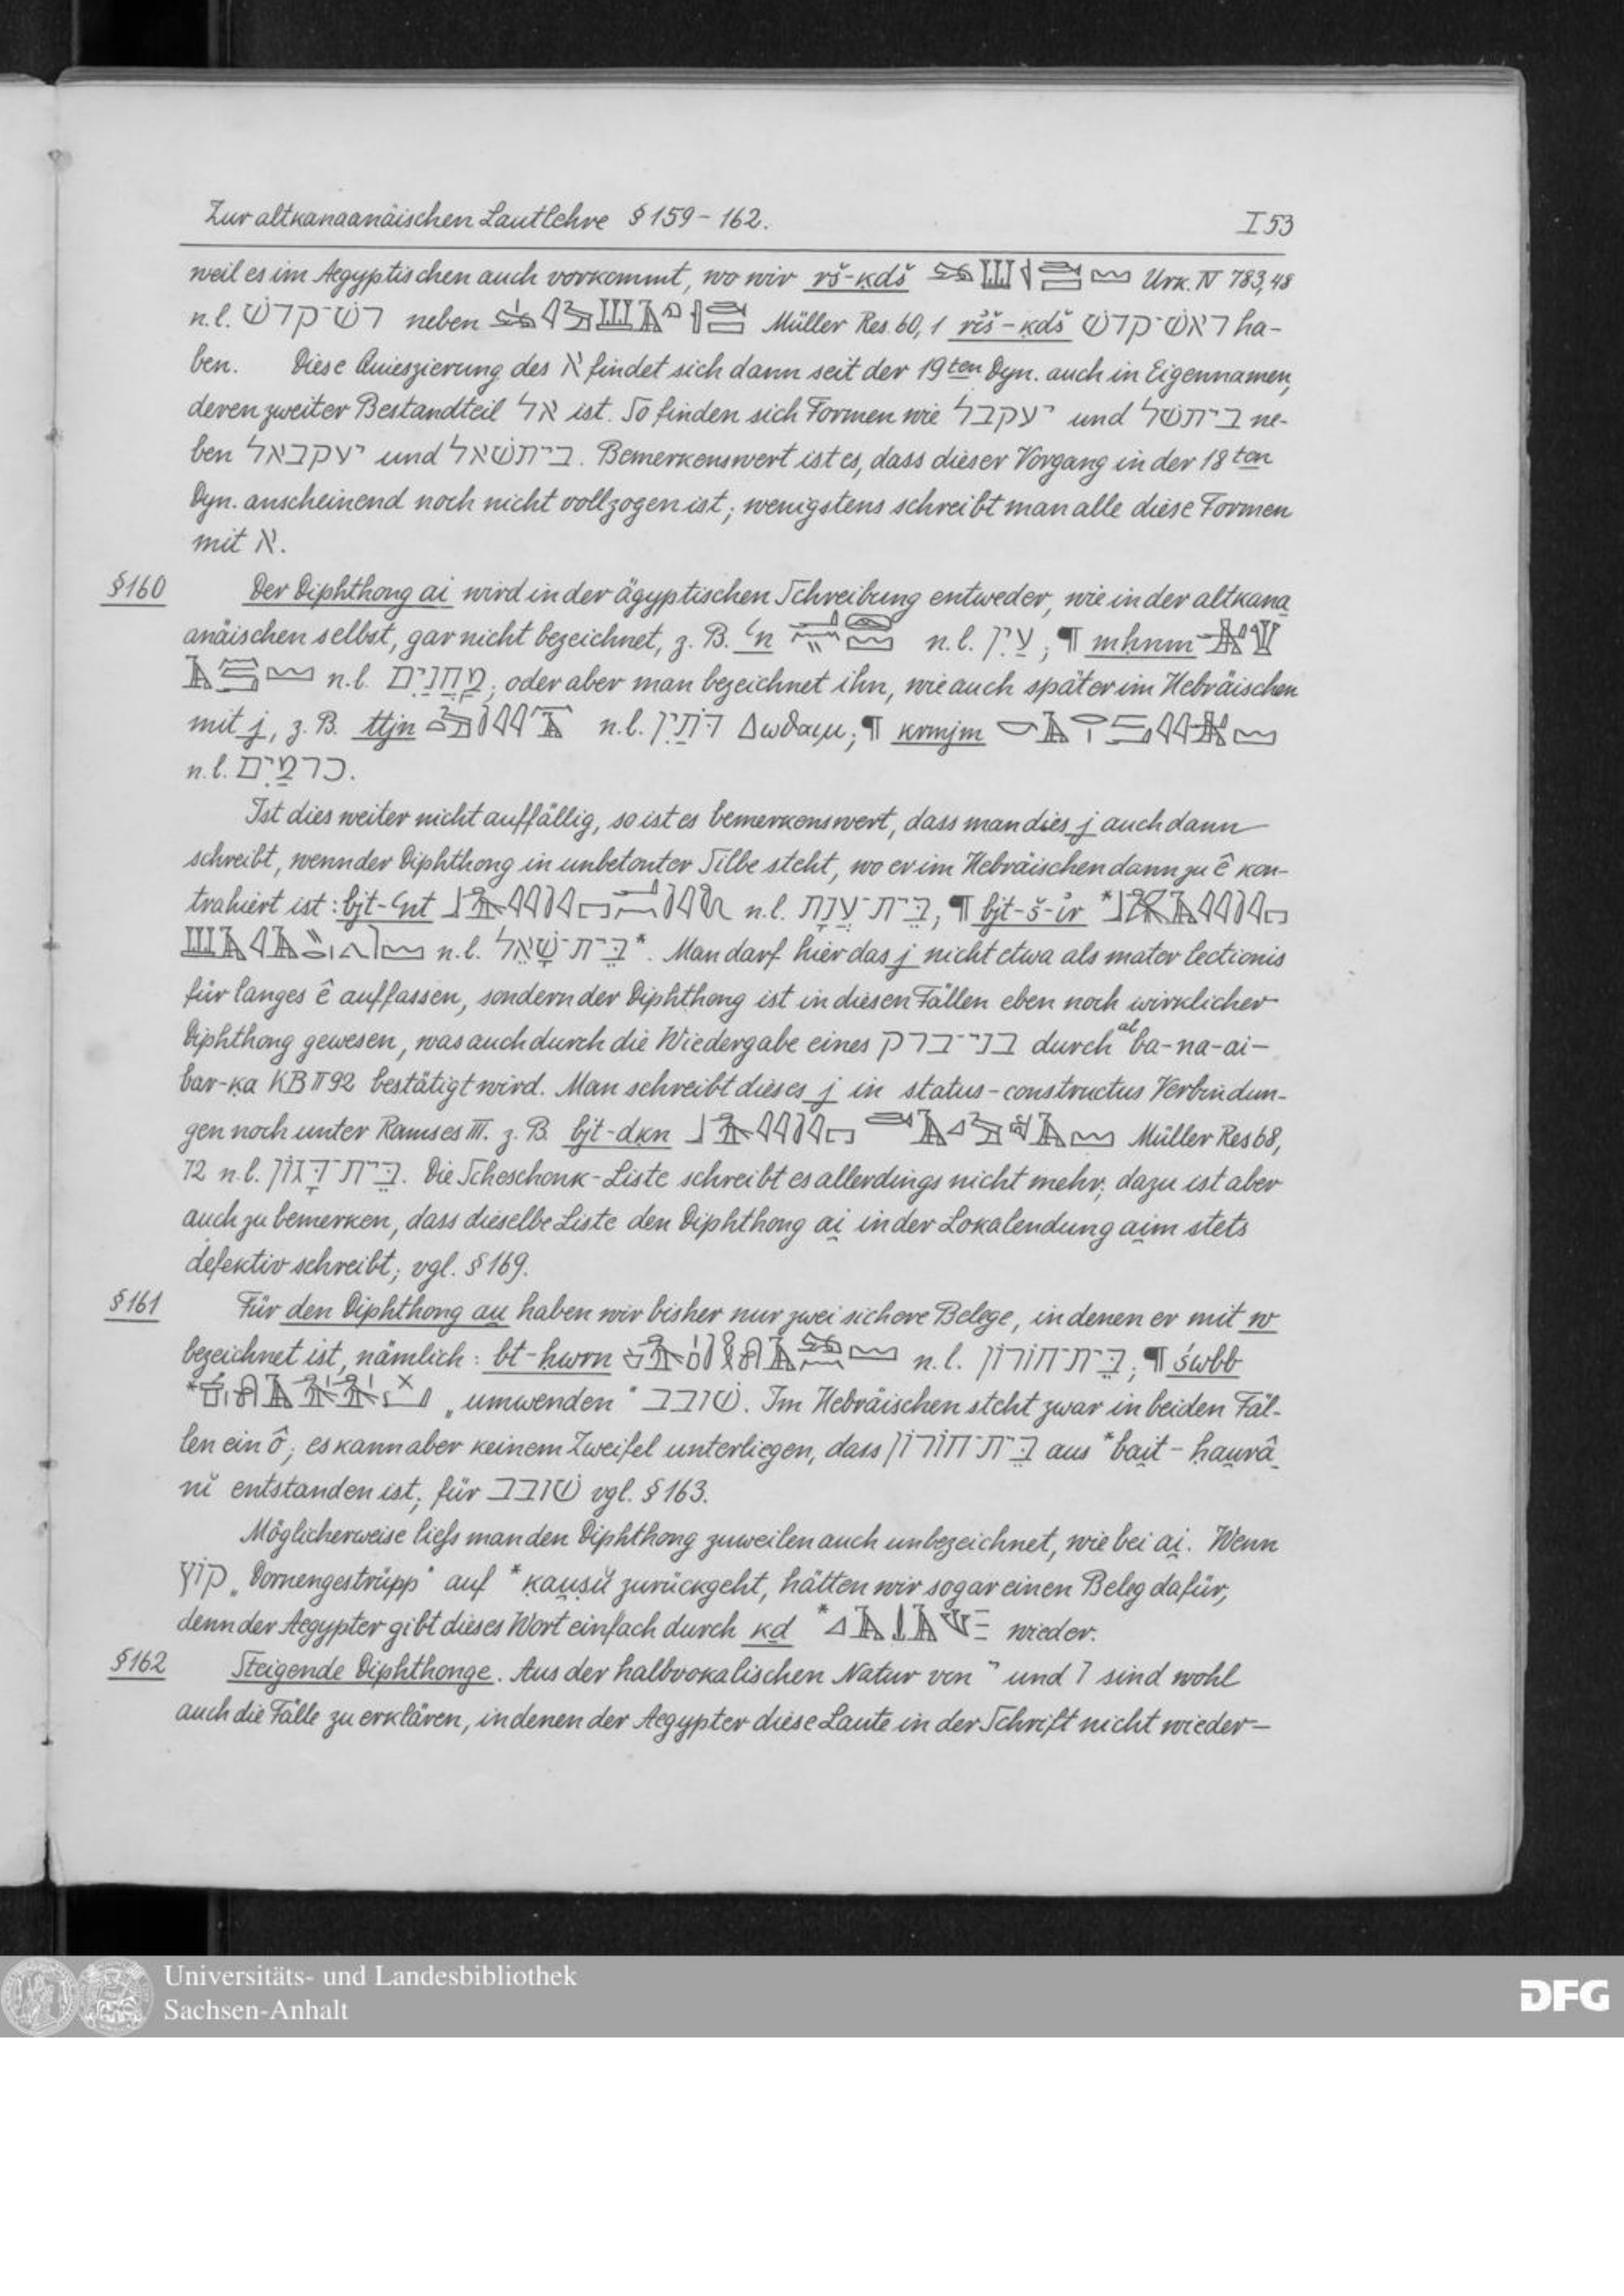 Zur altkanaanäischen Lautlehre § 159 - 162. I 53
weil es im Aegyptischen auch vorkommt, wo wir rš-ḳdš Urk. IV 783,48
n.l. רשׁ־קדשׁ neben Müller Res. 60, 1 rỉš-ḳdš ראשׁ־קדשׁ ha-
ben. Diese Quieszierung des א findet sich dann seit der 19ten Dyn. auch in Eigennamen,
deren zweiter Bestandteil אל ist. So finden sich Formen wie יעקבל und ביתשׁל ne-
ben יעקבאל und ביתשׁאל. Bemerkenswert ist es, dass dieser Vorgang in der 18ten
Dyn. anscheinend noch nicht vollzogen ist; wenigstens schreibt man alle diese Formen
mit א.
§160 Der Diphthong ai̯ wird in der ägyptischen Schreibung entweder, wie in der altkana
anäischen selbst, gar nicht bezeichnet, z. B. ʿn n.l. עַיִן; ¶ mḥnm
n.l. מַחֲנַיִם; oder aber man bezeichnet ihn, wie auch später im Hebräischen
mit j, z. B. ttjn n.l. דֹּתַיִן Δωθαιμ; ¶ krmjm
n.l. כרמַיִם.
Ist dies weiter nicht auffällig, so ist es bemerkenswert, dass man dies j auch dann
schreibt, wenn der Diphthong in unbetonter Silbe steht, wo er im Hebräischen dann zu ê kon-
trahiert ist: bjt-ʿnt n.l. בֵּית־עֲנָת; ¶ bjt-š-ỉr *
n.l. בֵּית־שְׁאֵל*. Man darf hier das j nicht etwa als mater lectionis
für langes ê auffassen, sondern der Diphthong ist in diesen Fällen eben noch wirklicher
Diphthong gewesen, was auch durch die Wiedergabe eines בני־ברק durch al ba-na-ai-
bar-ḳa KB II 92 bestätigt wird. Man schreibt dieses j in status-constructus Verbindun-
gen noch unter Ramses III. z. B. bjt-dḳn Müller Res 68,
72 n.l. בֵּית־דָּגוֹן. Die Scheschonk-Liste schreibt es allerdings nicht mehr; dazu ist aber
auch zu bemerken, dass dieselbe Liste den Diphthong ai̯ in der Lokalendung ai̯m stets
defektiv schreibt; vgl. § 169.
§161 Für den Diphthong au̯ haben wir bisher nur zwei sichere Belege, in denen er mit w
bezeichnet ist, nämlich: bt-ḥwrn n.l. בֵּית־חורון; ¶ śwbb
* „umwenden“ שׁובב. Im Hebräischen steht zwar in beiden Fäl-
len ein ô; es kann aber keinem Zweifel unterliegen, dass בֵּית־חוֹרוֹן aus *bai̯t-ḥau̯râ
nĭ entstanden ist; für שׁובב vgl. § 163.
Möglicherweise liefs man den Diphthong zuweilen auch unbezeichnet, wie bei ai̯. Wenn
קוֹץ „Dornengestrüpp“ auf *ḳau̯ṣŭ zurückgeht, hätten wir sogar einen Beleg dafür,
denn der Aegypter gibt dieses Wort einfach durch ḳḏ * wieder.
§162 Steigende Diphthonge. Aus der halbvokalischen Natur von י und ו sind wohl
auch die Fälle zu erklären, in denen der Aegypter diese Laute in der Schrift nicht wieder-
Universitäts- und Landesbibliothek
Sachsen-Anhalt
DFG